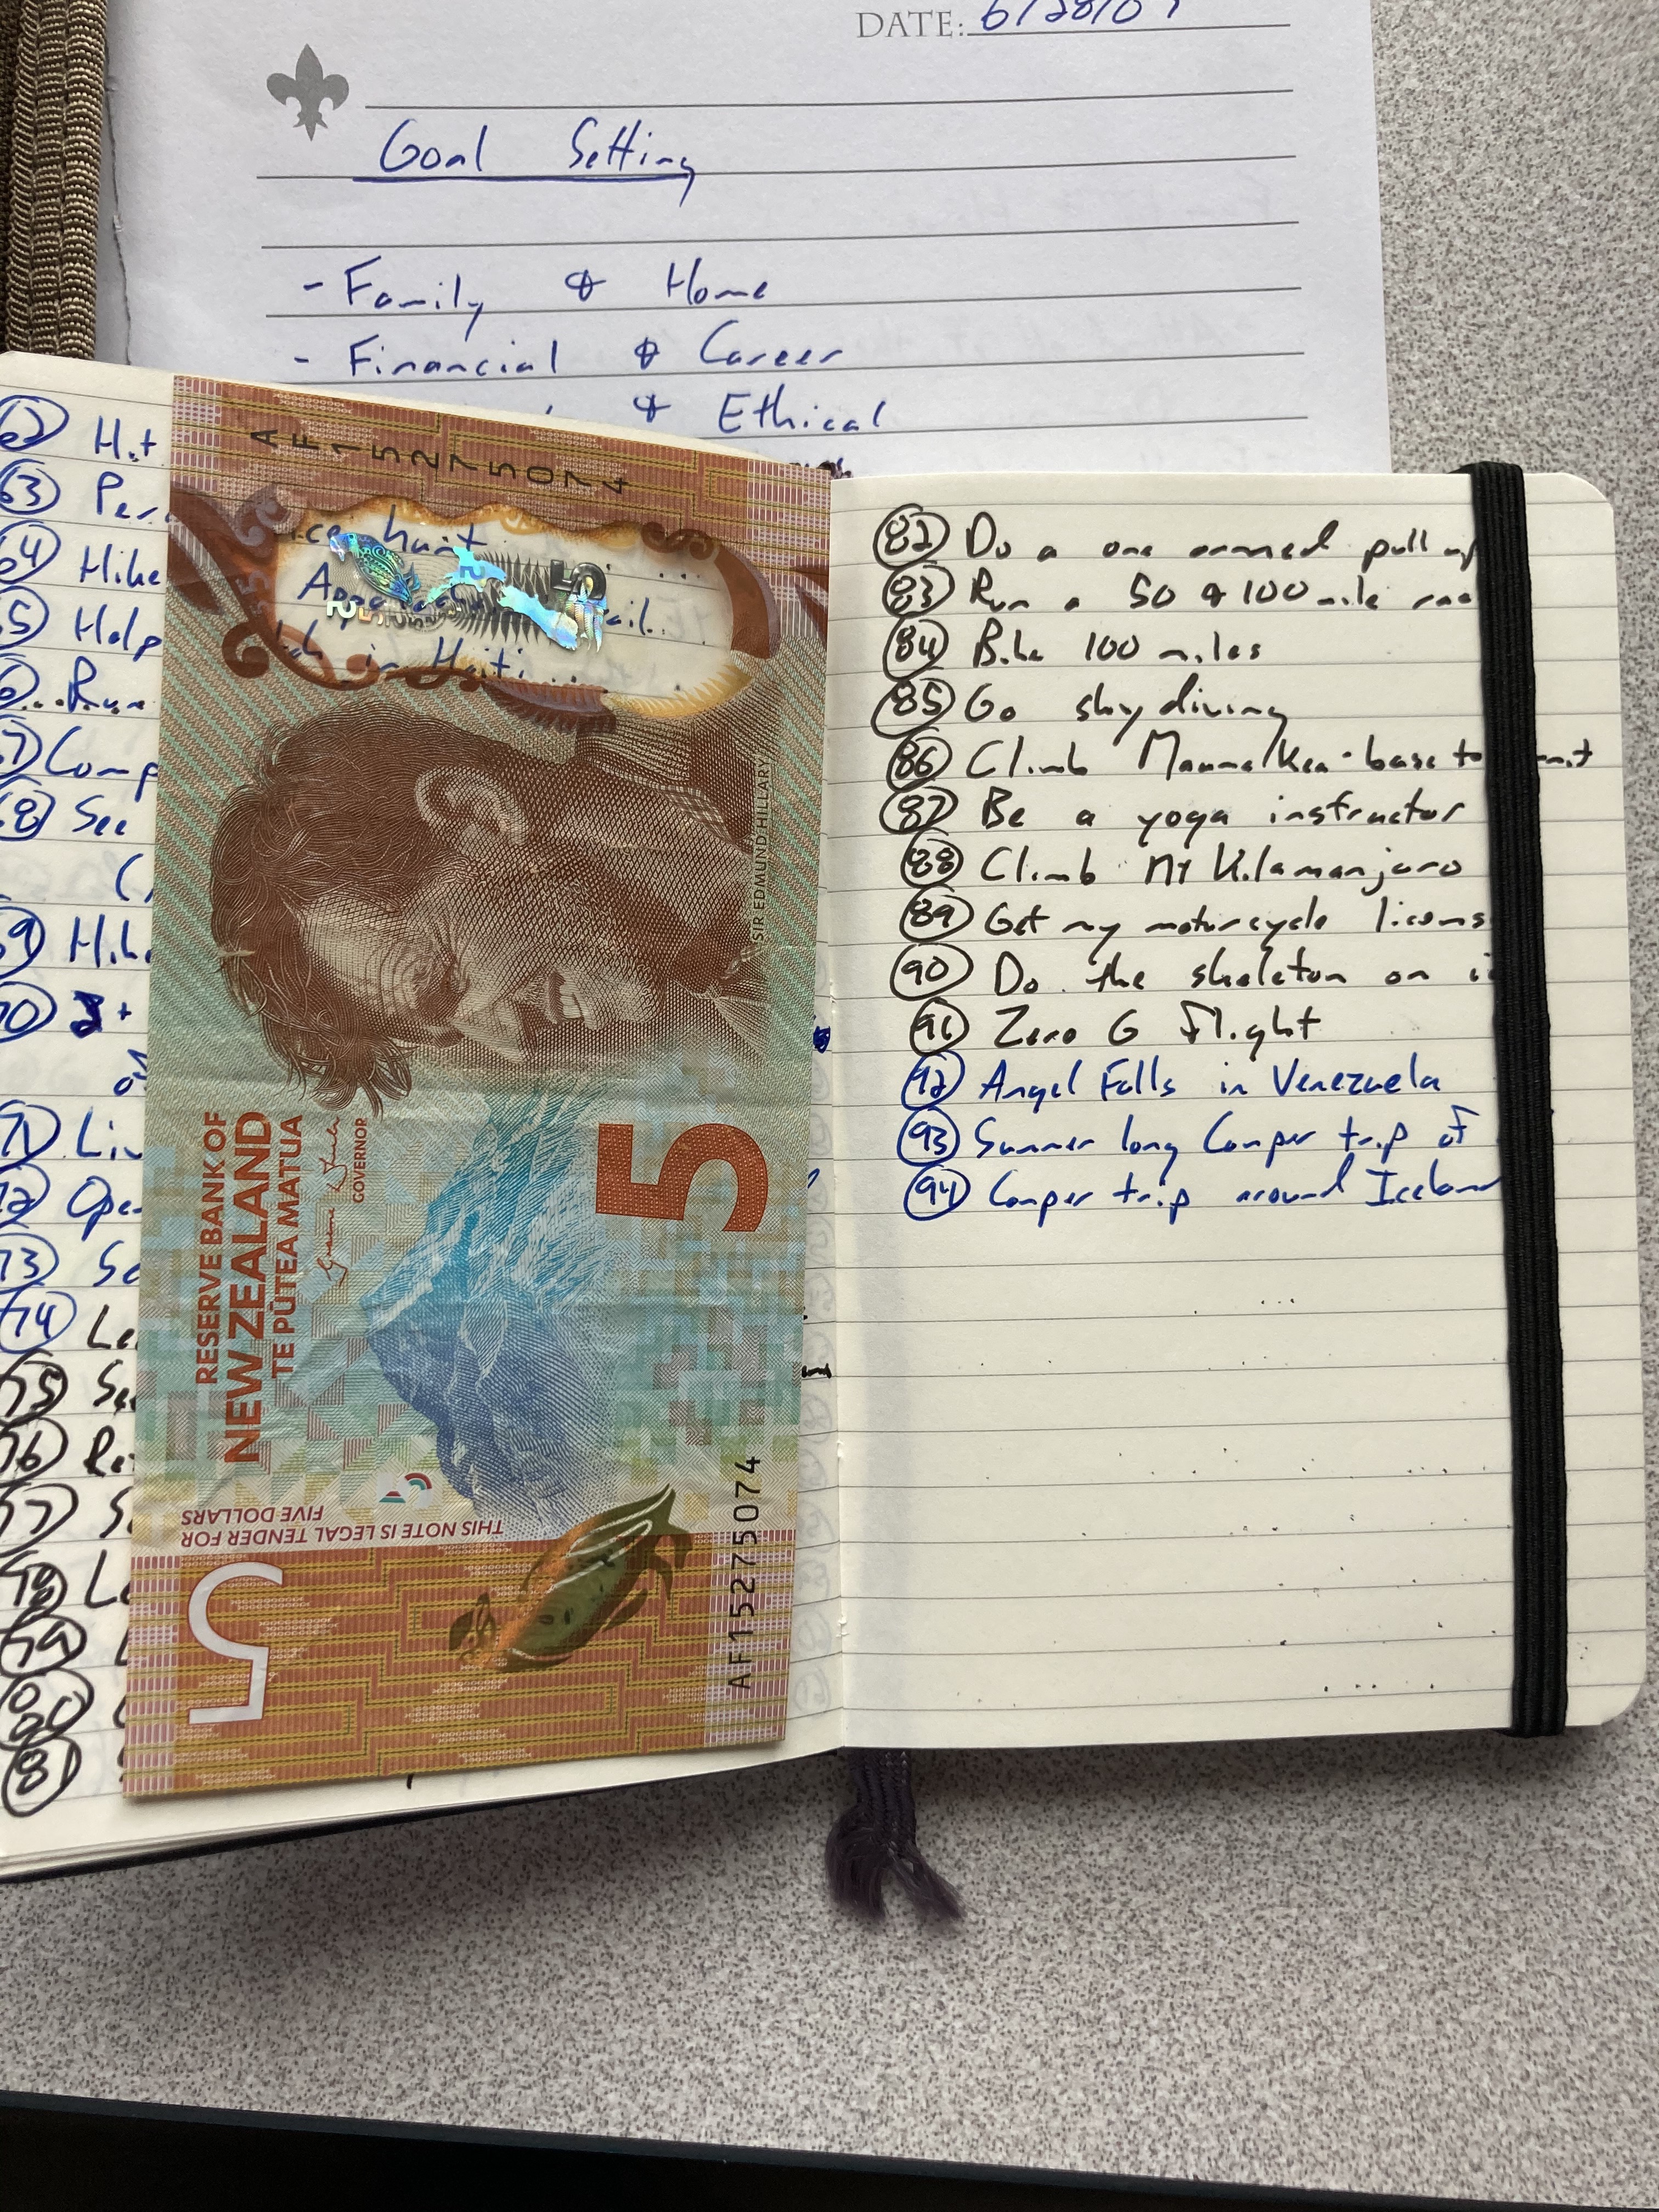 DATE: 6/28/09
Goal Setting
- Family & Home
- Financial & Career
& Ethical
62 Hit
63 Per
64 Hike
65 Help
66 Run
67 Comp
68 See
69 Hike
70
71 Liv
72 Ope
73 Sc
74 Le
75 Se
76
77 S
78 Le
79
80
81
AF15275074
hunt
in Haiti
SIR EDMUND HILLARY
RESERVE BANK OF
NEW ZEALAND
TE PŪTEA MATUA
GOVERNOR
5
THIS NOTE IS LEGAL TENDER FOR
FIVE DOLLARS
5
AF15275074
82 Do a one armed pull up
83 Run a 50 & 100 mile rac
84 Bike 100 miles
85 Go skydiving
86 Climb Mauna Kea - base to mit
87 Be a yoga instructor
88 Climb Mt Kilamanjaro
89 Get my motorcycle licens
90 Do the skeleton on i
91 Zero G Flight
92 Angel Falls in Venezuela
93 Summer long Camper trip of
94 Camper trip around Icelan